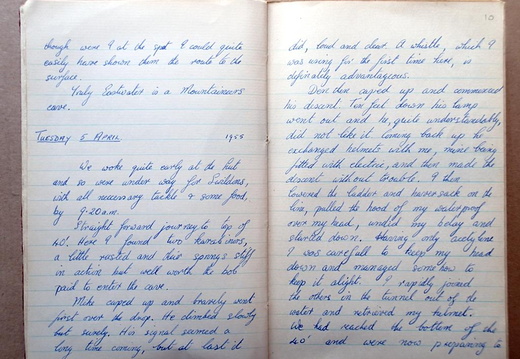 though were I at the spot I could quite
easily have shown them the route to the
surface.
Truly Eastwater is a Mountaineers
cave.
TUESDAY 5 APRIL 1955
We woke quite early at the hut
and so were under way for Swildons,
with all necessary tackle & some food,
by 9.20 a.m.
Straight forward journey to top of
40'. Here I found two karabiners,
a little rusted and their springs stiff
in action but well worth the bob
paid to enter the cave.
Mike caped up and bravely went
first over the drop. He climbed slowly
but surely. His signal seemed a
long time coming, but at last it
10
did, loud and clear. A whistle, which I
was using for the first time here, is
definitely advantageous.
Denden caped up and commenced
his descent. Ten feet down his lamp
went out and he, quite understandably,
did not like it. Coming back up he
exchanged helmets with me, mine being
fitted with electric, and then made the
descent without trouble. I then
lowered the ladder and haversack on the
line, pulled the hood of my waterproof
over my head, untied my belay and
started down. Having only acetylene
I was carefull to keep my head
down and managed somehow to
keep it alight. I rapidly joined
the others in the tunnel out of the
water and retrieved my helmet.
We had reached the bottom of the
40' and were now preparing to